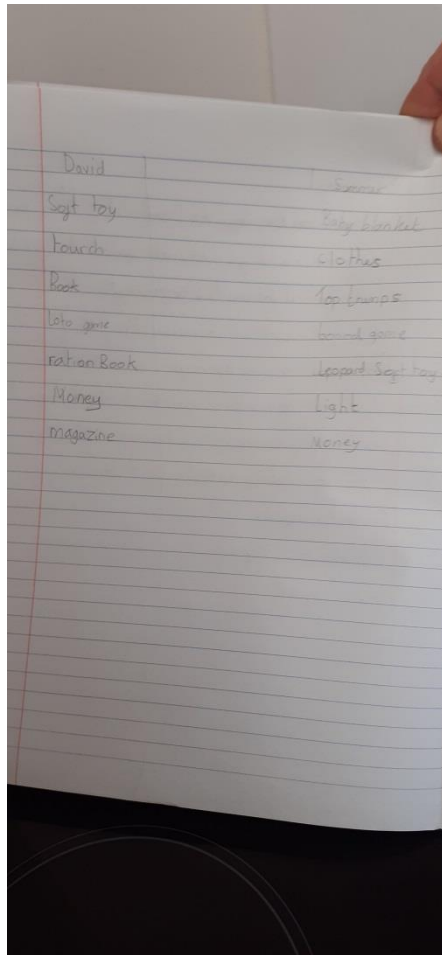 David
Soft toy
tourch
Book
Loto game
ration Book
Money
magazine
Summer
Baby blanket
clothes
Top trumps
board game
Leopard Soft toy
Light
Money